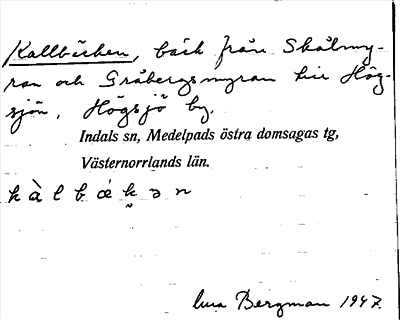 Kallbäcken, bäck från Skålmy-
ran och Gråbergsmyran till Hög-
sjön, Högsjö by.
Indals sn, Medelpads östra domsagas tg,
Västernorrlands län.
k à l b æ k ə n
Bergman 1947.